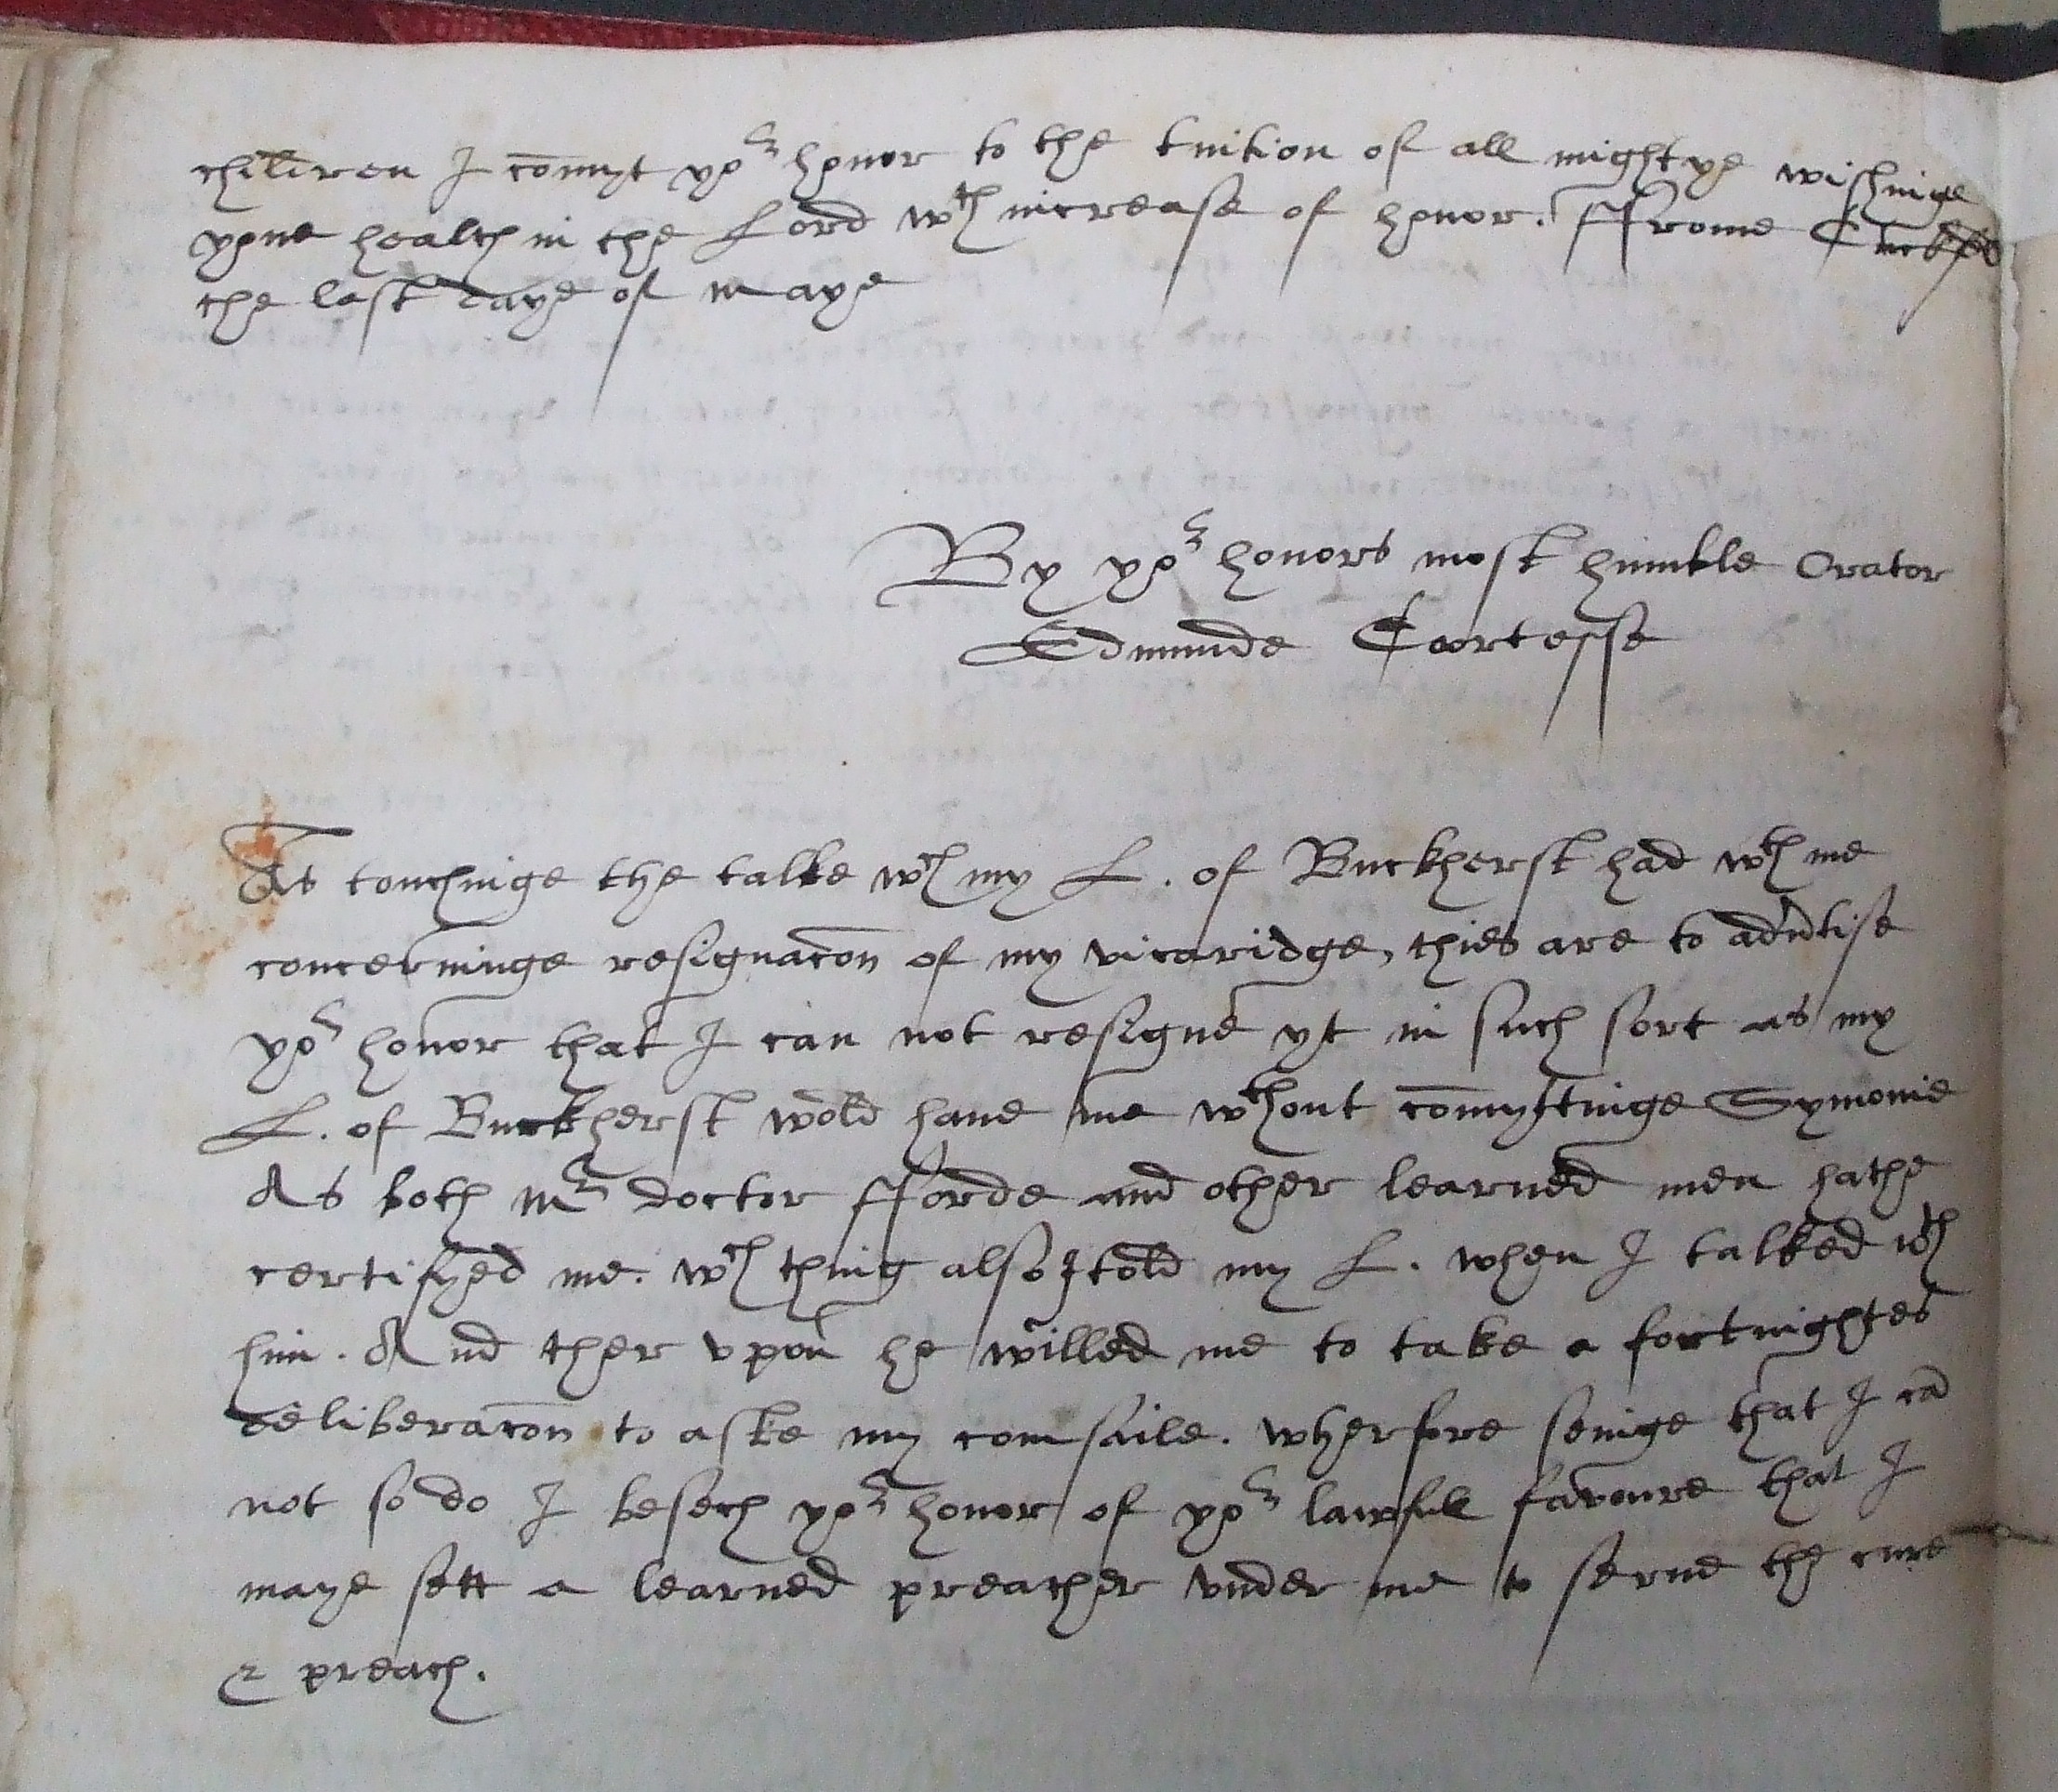 children I com̄yt yo^r honor to the tuition of all mightye wishinge
youe health in the Lord w^th increase of honor. ffrome
the last daye of maye
By yo^r honors most humble Orator
Edmunde Cortesse
As touchinge the talke w^ch my L. of Buckherst had w^th me
concerninge resignac̄on of my vicaridge, thies are to adu̓tise
yo^r honor that I can not resigne yt in such sort as my
L. of Buckherst wold haue me w^thout com̄yttinge Symonie
As both m^r doctor fforde and other learned men hathe
certifyed me. w^ch thing also I told my L. when I talked w^th
him. And ther vpon he willed me to take a fortnightes
deliberac̄on to aske my counsaile. wherfore seinge that I cā
not so do I besech yo^r honor of yo^r lawfull favoure that I
maye sett a learned preacher vnder me to serue the cure
& preach.